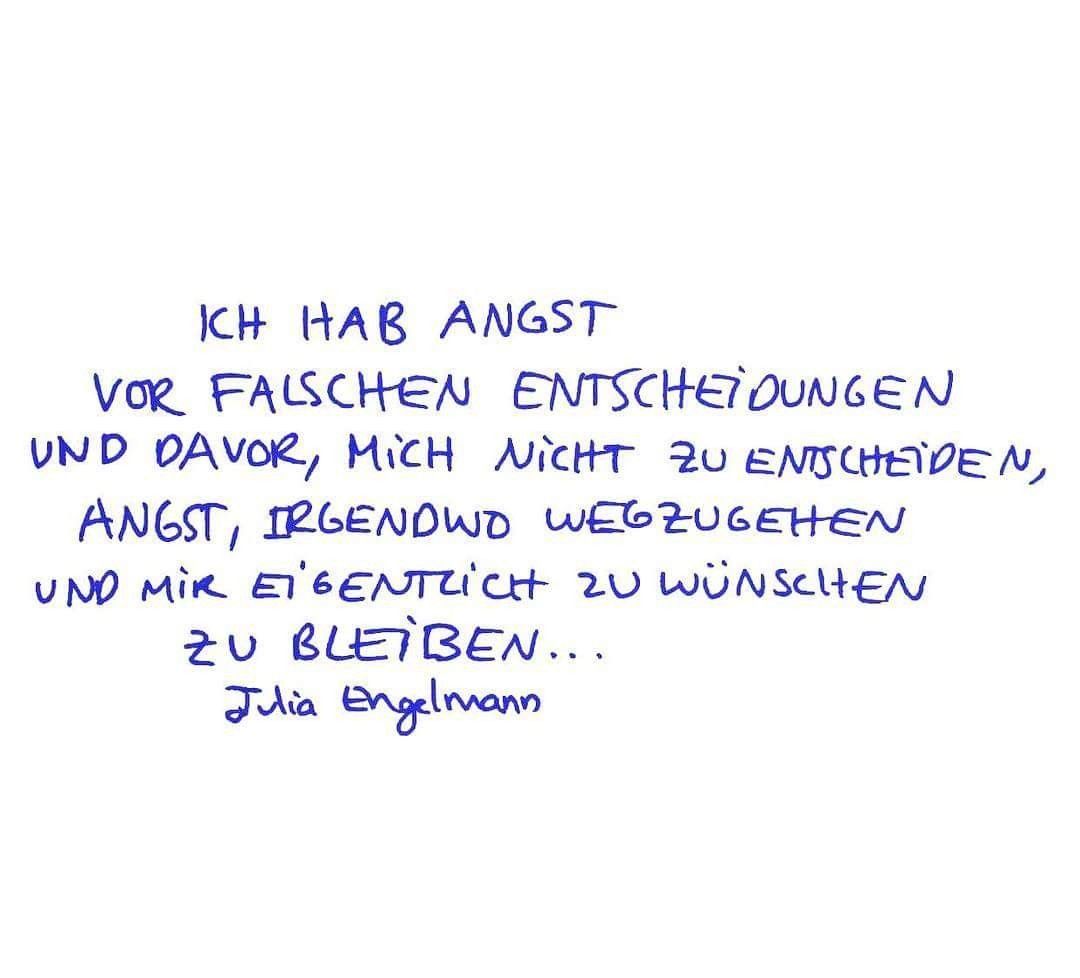 ICH HAB ANGST
VOR FALSCHEN ENTSCHEIDUNGEN
UND DAVOR, MICH NICHT ZU ENTSCHEIDEN,
ANGST, IRGENDWO WEGZUGEHEN
UND MIR EIGENTLICH ZU WÜNSCHEN
ZU BLEIBEN...
Julia Engelmann